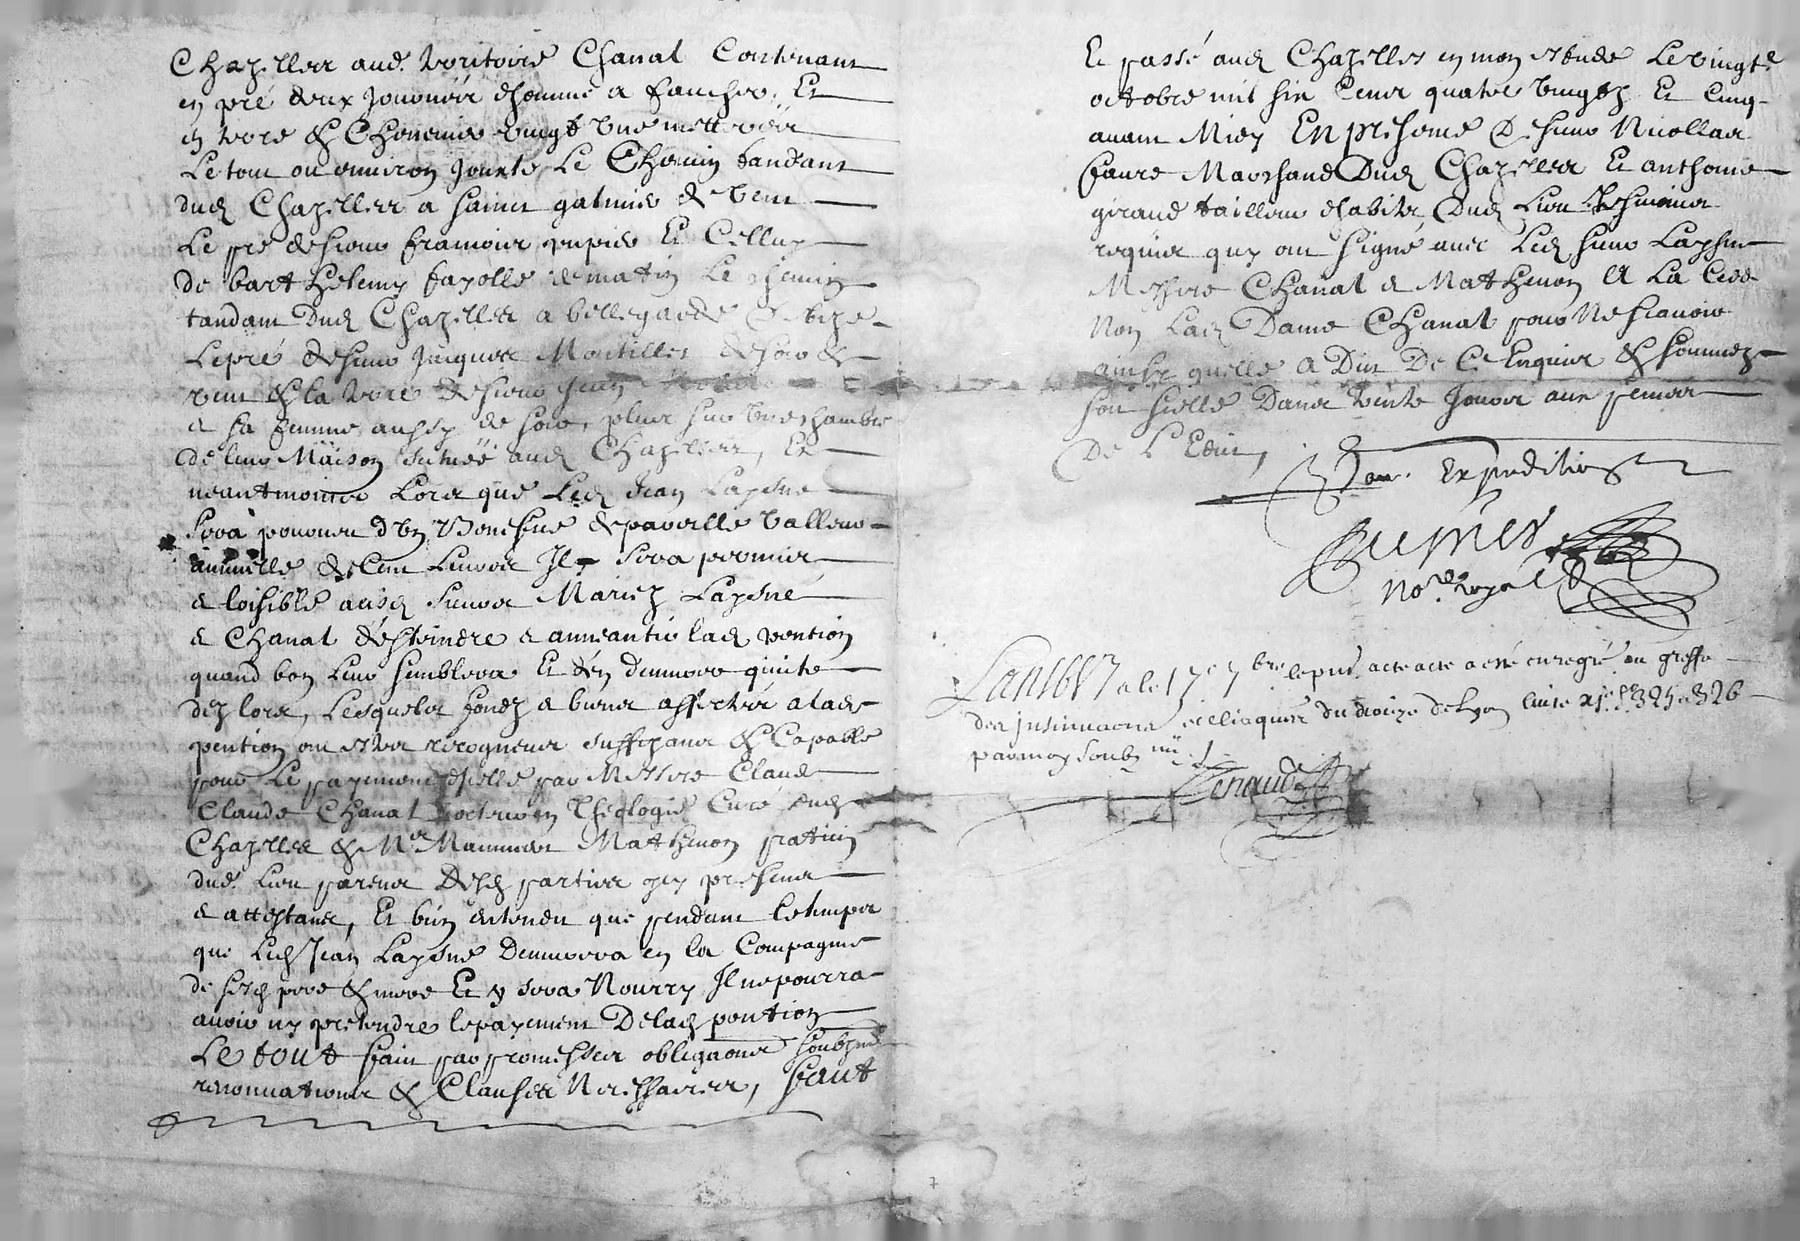 Chazelles aud. territoire Chanal Contenant
en pré deux Journées d'homme a faucher, Et
en terre & Chenevier vingt une metterées
Le tout ou environ Jouxte Le Chemin tendant
dud Chazelles a saint galmier de vent
Le pré de sieur francois pupier Et Celluy
de barthelemy fayolle de matin Le chemin
tandant Dud Chazelles a bellegarde de bize
Le pré de sieur Jacques Montillet de soir &
vent & la terre de sieur Jean
& sa femme aussy de soir, plus sur une chambre
de leur Maison située aud Chazelles, Et
neantmoins Lors que Led Jean Laysné
sera pourveu d'un Benefice de pareille valleur
annuelle de Cent Livres Il sera permis
& loisible ausd sieurs Mariez Laysné
& Chanal d'esteindre & anneantir lad pention
quand bon Leur semblera Et d'en demeurer quitte
dez lors, Lesquels fondz & biens affectés a lad
pention ont estes recogneus suffizants & Capable
pour Le payement d'icelle par Messire Claude
Claude Chanal docteur en Theologie Curé dud
Chazelles & Me Mathenon praticien
dud. Lieu parens desd parties icy presents
& attestants, Et bien entendu que pendant le temps
que Led Jean Laysné Demeurera en la Compagnie
de sesd pere & mere Et y sera Nourry Il ne pourra
avoir ny pretendre le payement De lad pention
Le tout fait par promesses obligaons soubzmi
renonciations & Clauses Necessaires, fait
Et passé aud Chazelles en mon estude Le vingte
octobre mil six Cent quatre vingtz Et Cinq
avant Midy En presence De sieur Nicollas
faure Marchand Dud Chazelles Et anthoine
giraud tailleur d'habits Dud Lieu tesmoins
requis quy ont signé avec Led sieur Laysné
Messire Chanal & Mathenon Et La Cede
Non Lad Dame Chanal pour Ne scavoir
ainsy quelle a Dit De Ce Enquise & sommez
soit scellé Dans trente Jours aux peines
De L'Edit,
Expedition
No.re Royal
L'an 1687 & le 17e 7bre le pnt acte acte a esté enregré au greffe
des Insinuaons eccliaques du dioceze de Lyon livre 21e f.o 325 & 326
par moy soubz.né
Renaud